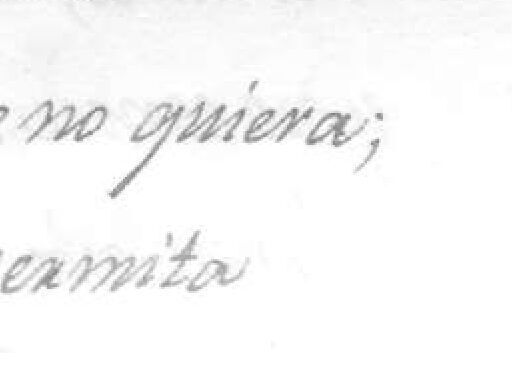 e no quiera;
ermita